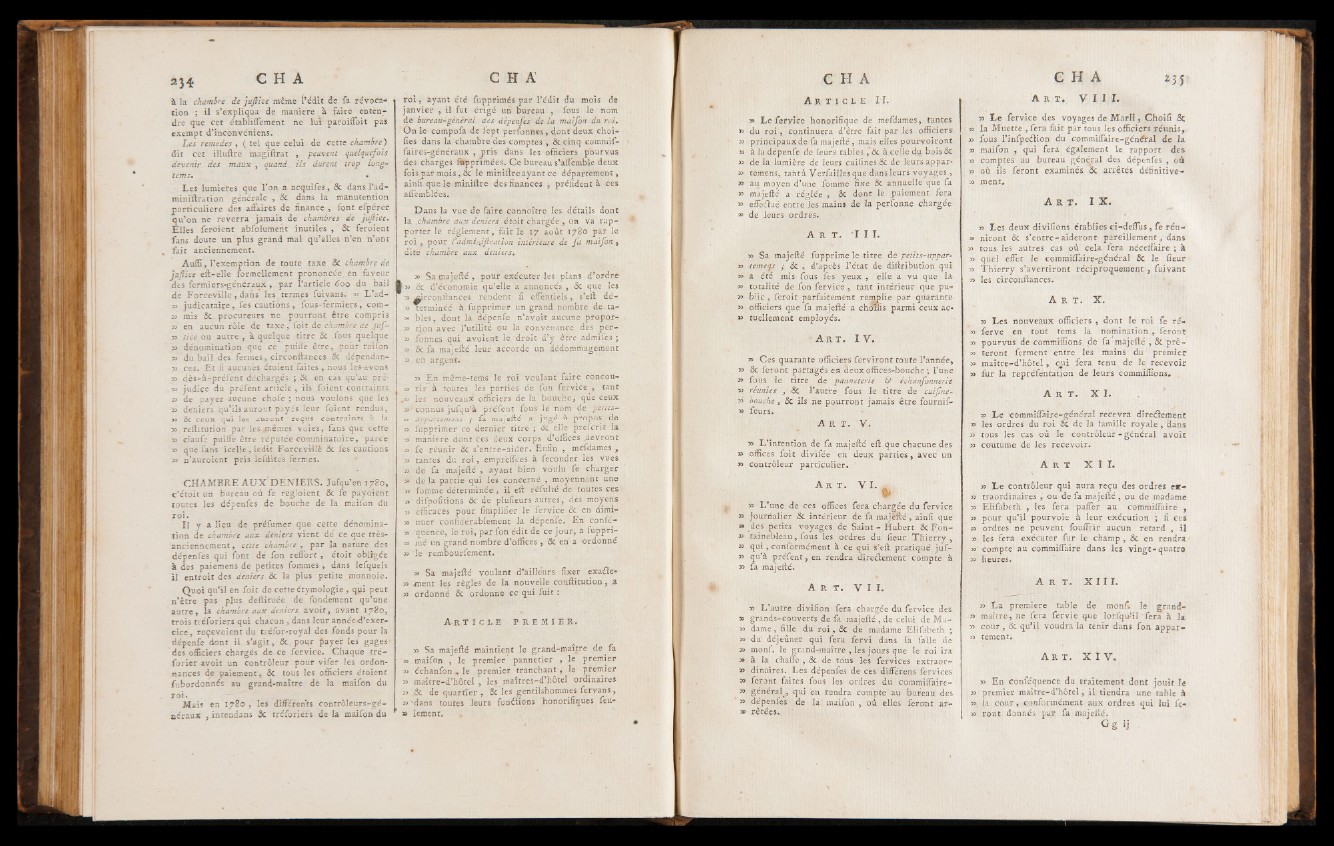 234 C H A
à la chambre de juſtice même l'édit de ſa révoca-
tion ; il s'expliqua de maniere à faire enten-
dre que cet établiſſement ne lui paroiſſoit pas
exempt d'inconvéniens.
Les remedes, ( tel que celui de cette chambre )
dit cet illuſtre magiſtrat , peuvent quelquefois
devenir des maux , quand ils durent trop long-
tems.
Les lumieres que l'on a acquiſes, & dans l'ad-
miniſtration générale , & dans la manutention
particuliere des affaires de finance , font eſpérer
qu'on ne reverra jamais de chambres de juſtice.
Elles ſeroient abſolument inutiles , & ſeroient
ſans doute un plus grand mal qu'elles n'en n'ont
fait anciennement.
Auſſi, l'exemption de toute taxe & chambre de
juſtice eſt-elle formellement prononcée en faveur
des fermiers-généraux , par l'article 600 du bail
de Forceville, dans les termes ſuivans. » L'ad-
» judicataire, ſes cautions, ſous-fermiers, com-
» mis & procureurs ne pourront être compris
» en aucun rôle de taxe, ſoit de chambre de juſ-
» tice ou autre , à quelque titre & ſous quelque
» dénomination que ce puiſſe être, pour raiſon
» du bail des fermes, circonſtances & dépendan-
» ces. Et ſi aucunes étoient faites , nous les avons
» dès-à-préſent déchargés ; & en cas qu'au pré-
» judice du préſent article , ils ſoient contraints
» de payer aucune choſe ; nous voulons que les
» deniers qu'ils auront payés leur ſoient rendus,
» & ceux qui les auront reçus contraints à la
» reſtitution par les mêmes voies, ſans que cette
» clauſe puiſſe être réputée comminatoire, parce
» que ſans icelle, ledit Forceville & ſes cautions
» n'auroient pris leſdites fermes.
CHAMBRE AUX DENIERS. Juſqu'en 1780,
c'étoit un bureau où ſe régloient & ſe payoient
toutes les dépenſes de bouche de la maiſon du
roi.
Il y a lieu de préſumer que cette dénomina-
tion de chambre aux deniers vient de ce que très-
anciennement, cette chambre , par la nature des
dépenſes qui ſont de ſon reſſort , étoit obligée
à des paiemens de petites ſommes , dans leſquels
il entroit des deniers & la plus petite monnoie.
Quoi qu'il en ſoit de cette étymologie , qui peut
n'être pas plus deſtituée de fondement qu'une
autre, la chambre aux deniers avoit, avant 1780,
trois tréſoriers qui chacun, dans leur année d'exer-
cice, recevoient du tréſor-royal des fonds pour la
dépenſe dont il s'agit, & pour payer les gages
des officiers chargés de ce ſervice. Chaque tré-
ſorier avoit un contrôleur pour viſer les ordon-
nances de paiement, & tous les officiers étoient
ſubordonnés au grand-maître de la maiſon du
roi.
Mais en 1780 , les différents contrôleurs-gé-
néraux , intendans & tréſoriers de la maiſon du
C H A
roi, ayant été ſupprimés par l'édit du mois de
janvier , il fut érigé un bureau , ſous le nom
de bureau-général des dépenſes de la maiſon du roi.
On le compoſa de ſept perſonnes, dont deux choi-
ſies dans la chambre des comptes , & cinq commiſ-
ſaires-généraux , pris dans les officiers pourvus
des charges ſupprimées. Ce bureau s'aſſemble deux
fois par mois, & le miniſtre ayant ce département,
ainſi que le miniſtre des finances , préſident à ces
aſſemblées.
Dans la vue de faire connoître les détails dont
la chambre aux deniers étoit chargée , on va rap-
porter le réglement, fait le 17 août 1780 par le
roi , pour l'adminiſtration intérieure de ſa maiſon,
dite chambre aux deniers.
» Sa majeſté, pour exécuter les plans d'ordre
» & d'économie qu'elle a annoncés , & que les
» circonſtances rendent ſi eſſentiels, s'eſt dé-
» terminée à ſupprimer un grand nombre de ta-
» bles, dont la dépenſe n'avoit aucune propor-
» tion avec l'utilité ou la convenance des per-
» ſonnes qui avoient le droit d'y être admiſes ;
» & ſa majeſté leur accorde un dédommagement
» en argent.
» En même-tems le roi voulant faire concou-
» rir à toutes les parties de ſon ſervice , tant
» les nouveaux officiers de la bouche, que ceux
» connus juſqu'à préſent ſous le nom de petits-
» appartemens ; ſa majeſté a jugé à propos de
» ſupprimer ce dernier titre ; & elle preſcrit la
» maniere dont ces deux corps d'offices devront
» ſe réunir & s'entre-aider. Enfin , meſdames ,
» tantes du roi, empreſſées à ſeconder les vues
» de ſa majeſté , ayant bien voulu ſe charger
» de la partie qui les concerne , moyennant une
» ſomme déterminée, il eſt réſulté de toutes ces
» diſpoſitions & de pluſieurs autres, des moyens
» efficaces pour ſimplifier le ſervice & en dimi-
» nuer conſidérablement la dépenſe. En conſé-
» quence, le roi, par ſon édit de ce jour, a ſuppri-
» mé un grand nombre d'offices , & en a ordonné
» le rembourſement.
» Sa majeſté voulant d'ailleurs fixer exacte-
» ment les règles de la nouvelle conſtitution, a
» ordonné & ordonne ce qui ſuit :
ARTICLE PREMIER.
» Sa majeſté maintient le grand-maître de ſa
» maiſon , le premier pannetier , le premier
» échanſon, le premier tranchant , le premier
» maître-d'hôtel , les maîtres-d'hôtel ordinaires
» & de quartier , & les gentilshommes ſervans,
» dans toutes leurs fonctions honorifiques ſeu-
» lement.
C H A
ARTICLE II.
» Le ſervice honorifique de meſdames, tantes
» du roi, continuera d'être fait par les officiers
» principaux de ſa majeſté, mais elles pourvoiront
» à la dépenſe de leurs tables, & à celle du bois &
» de la lumière de leurs cuiſines & de leurs appar-
» temens, tant à Verſailles que dans leurs voyages ,
» au moyen d'une ſomme fixe & annuelle que ſa
» majeſté a réglée , & dont le paiement ſera
» effectué entre les mains de la perſonne chargée
» de leurs ordres.
ART. III.
» Sa majeſté ſupprime le titre de petits-appar-
» temens ; & , d'après l'état de diſtribution qui
» a été mis ſous ſes yeux , elle a vu que la
» totalité de ſon ſervice , tant intérieur que pu-
» blic, ſeroit parfaitement remplie par quarante
» officiers que ſa majeſté a choiſis parmi ceux ac-
» tuellement employés.
ART. IV.
» Ces quarante officiers ſerviront toute l'année,
» & ſeront partagés en deux offices-bouche ; l'une
» ſous le titre de panneterie & échanſonnerie
» réunies , & l'autre ſous le titre de cuiſine-
» bouche , & ils ne pourront jamais être fourniſ-
» ſeurs.
ART. V.
» L'intention de ſa majeſté eſt que chacune des
» offices ſoit diviſée en deux parties, avec un
» contrôleur particulier.
ART. VI.
» L'une de ces offices ſera chargée du ſervice
» journalier & intérieur de ſa majeſté, ainſi que
» des petits voyages de Saint-Hubert & Fon-
» tainebleau, ſous les ordres du ſieur Thierry ,
» qui , conformément à ce qui s'eſt pratiqué juſ-
» qu'à préſent, en rendra directement compte à
» ſa majeſté.
ART. VII.
» L'autre diviſion ſera chargée du ſervice des
» grands-couverts de ſa majeſté, de celui de Ma-
» dame, fille du roi, & de madame Eliſabeth ;
» du déjeûner qui ſera ſervi dans la ſalle de
» monſ. le grand-maître , les jours que le roi ira
» à la chaſſe, & de tous les ſervices extraor-
» dinaires. Les dépenſes de ces différens ſervices
» ſeront faites ſous les ordres du commiſſaire-
» général, qui en rendra compte au bureau des
» dépenſes de la maiſon , où elles ſeront ar-
» rêtées.
C H A 235
ART. VIII.
» Le ſervice des voyages de Marli, Choiſi &
» la Muette, ſera fait par tous les officiers réunis,
» ſous l'inſpection du commiſſaire-général de la
» maiſon , qui fera également le rapport des
» comptes au bureau général des dépenſes , où
» où ils ſeront examinés & arrêtés définitive-
» ment.
ART. IX.
» Les deux diviſions établies ci-deſſus, ſe réu-
» niront & s'entre-aideront pareillement, dans
» tous les autres cas où cela ſera néceſſaire ; à
» quel effet le commiſſaire-général & le ſieur
» Thierry s'avertiront réciproquement, ſuivant
» les circonſtances.
ART. X.
» Les nouveaux officiers, dont le roi ſe ré-
» ſerve en tout tems la nomination , ſeront
» pourvus de commiſſions de ſa majeſté, & prê-
» teront ſerment entre les mains du premier
» maître-d'hôtel , qui ſera tenu de le recevoir
» ſur la repréſentation de leurs commiſſions.
ART. XI.
» Le commiſſaire-général recevra directement
» les ordres du roi & de la famille royale, dans
» tous les cas où le contrôleur-général avoit
» coutume de les recevoir.
ART XII.
» Le contrôleur qui aura reçu des ordres ex-
» traordinaires , ou de ſa majeſté, ou de madame
» Eliſabeth , les fera paſſer au commiſſaire ,
» pour qu'il pourvoie à leur exécution ; ſi ces
» ordres ne peuvent ſouffrir aucun retard , il
» les fera exécuter ſur le champ, & en rendra
» compte au commiſſaire dans les vingt-quatre
» heures.
ART. XIII.
» La premiere table de monſ. le grand-
» maître, ne ſera ſervie que lorſqu'il ſera à la
» cour, & qu'il voudra la tenir dans ſon appar-
» tement.
ART. XIV.
» En conſéquence du traitement dont jouit le
» premier maître-d'hôtel, il tiendra une table à
» la cour, conformément aux ordres qui lui ſe-
» ront donnés par ſa majeſté.
G g ij